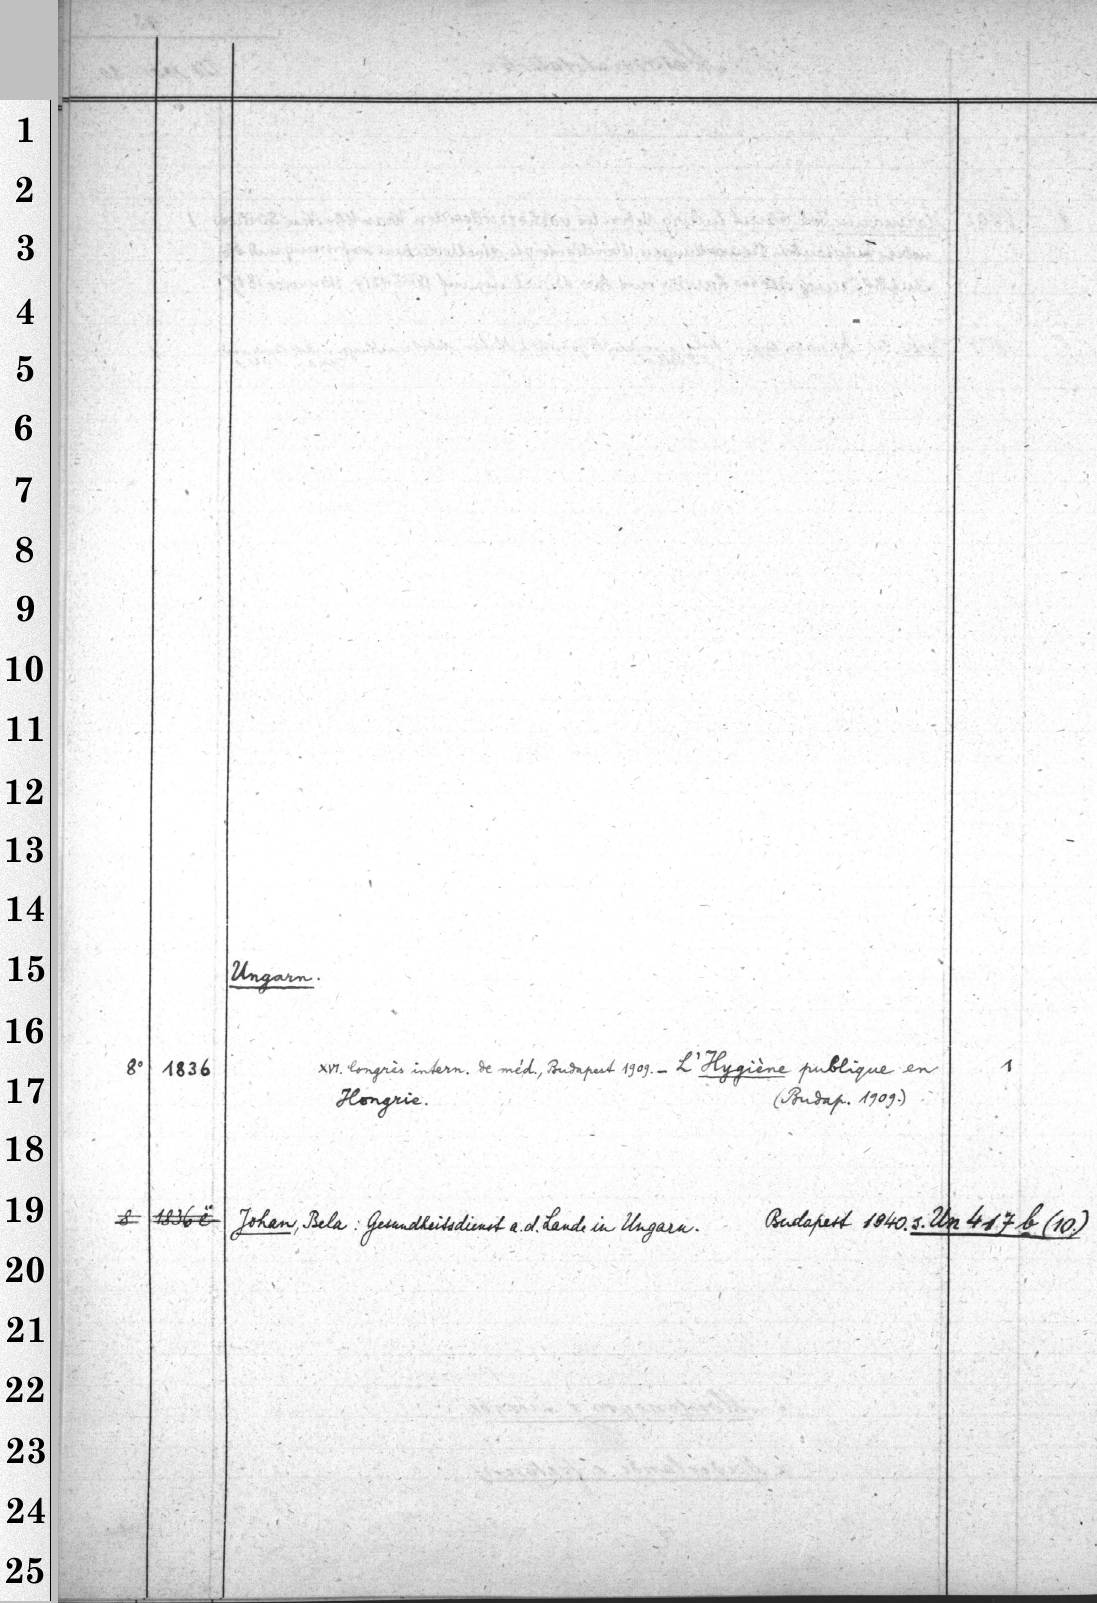 1
2
3
4
5
6
7
8
9
10
11
12
13
14
15
Ungarn.
16
8° 1836 XVI. Congrès intern. de méd., Budapest 1909. – L'Hygiène publique en 1
17
Hongrie. (Budap. 1909.)
18
19
8 1836 ë Johan, Bela: Gesundheitsdienst a. d. Lande in Ungarn. Budapest 1940. s. Un 417 b (10.)
20
21
22
23
24
25